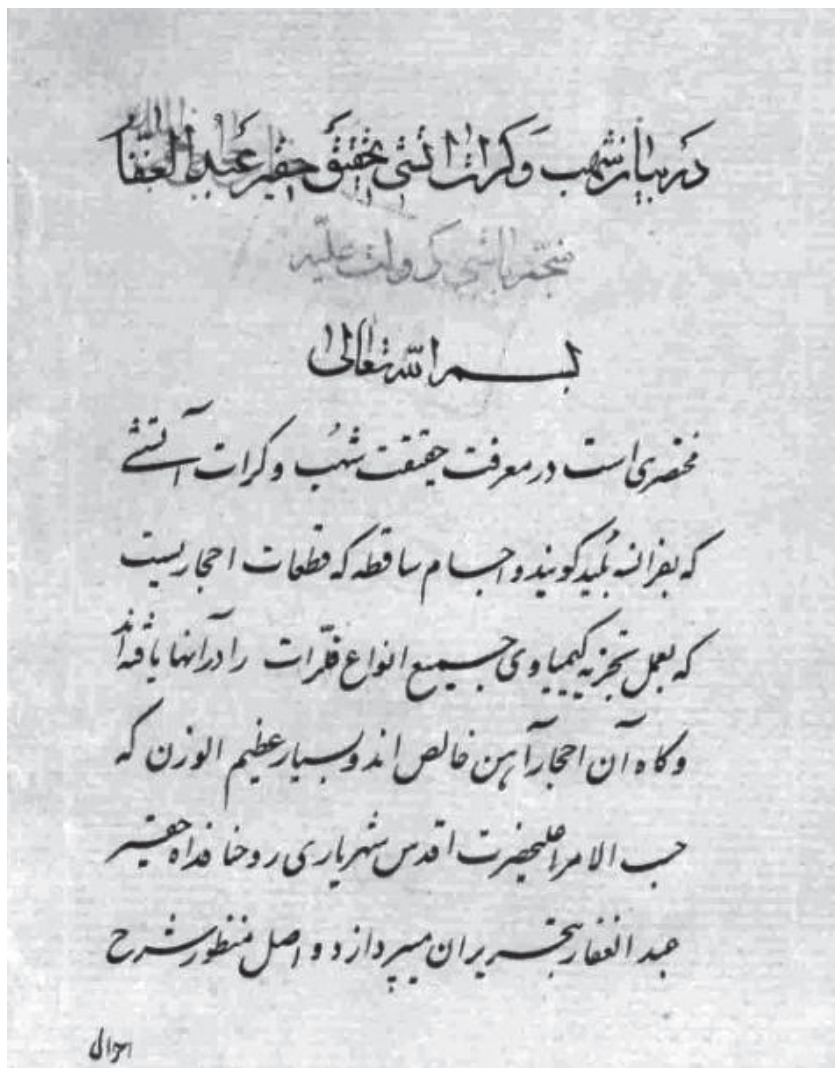 در بیان شهب و کرات آتشی بتحقیق حقیر عبد الغفار
منجّم باشی دولت علیّه
بسم الله تعالی
مختصری است در معرفت حقیقت شهُب و کرات آتشی
که بفرانسه بُلید گویند و اجسام ساقطه که قطعات احجاریست
که بعمل تجزیه کیمیاوی جمیع انواع فلزّات را در آنها یافته‌اند
و گاه آن احجار آهن خالص اند و بسیار عظیم الوزن که
حسب الامر اعلیحضرت اقدس شهریاری روحنا فداه حقیر
عبد الغفار بتحریر آن میپردازد و اصل منظور شرح
احوال